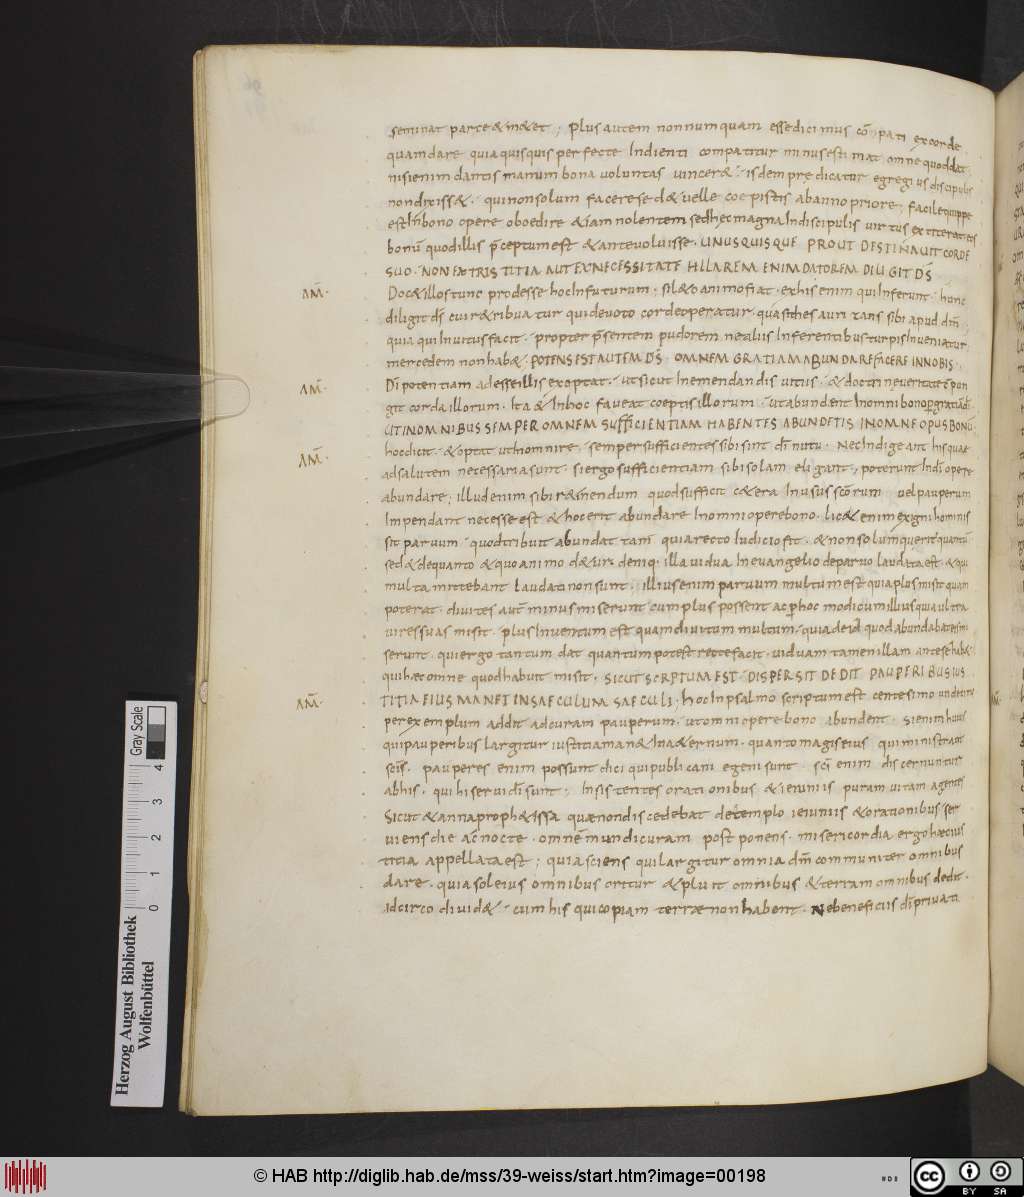 seminat parce & m&et ; plus autem non numquam esse dicimus cōpati ex corde
quam dare quia quisquis perfecte Indigenti compatitur minus estimat omne quod dat
nisi enim dantis manum bona voluntas vincer& isdem predicator egregius discipulis
non dixiss& . qui non solum facere sed & velle coepistis ab anno priore facile quippe
est In bono opere oboedire & iam nolentem sed hec magna In discipulis virtus extiterat eis
bonū quod illis p̄ceptum est & ante voluisse . UNUSQUISQUE PROUT DESTINAVIT CORDE
SUO . NON EX TRISTITIA AUT EX NECESSITATE HILAREM ENIM DATOREM DILIGIT D̄S
AM̄. Doc& illos tunc prodesse hoc In futurum . si l&o animo fiat . ex his enim qui Inferunt . hunc
diligit d̄s cui r&ribuatur qui devoto corde operatur . quasi thesaurizans sibi apud dm̄
quia qui Invitus facit . propter p̄sentem pudorem ne aliis Inferentibus turpis Inveniatur
mercedem non hab& . POTENS EST AUTEM D̄S . OMNEM GRATIAM ABUNDARE FACERE IN NOBIS .
AM̄. D̄i potentiam adesse illis exoptat . ut sicut In emendandis vitiis . & doctrine veritate
git corda illorum . Ita & In hoc faveat coeptis illorum . ut abundent In omni bono p gratiā d̄i
UT IN OMNIBUS SEMPER OMNEM SUFFICIENTIAM HABENTES ABUNDETIS IN OMNE OPUS BONŪ
AM̄. hoc dicit . & optat ut homnire . semper sufficientes sibi sint d̄i nutu . Nec Indigeant his quae
ad salutem necessaria sunt . si ergo sufficientiam sibi solam eligant , poterunt In d̄i opere
abundare ; illud enim sibi r&inendum quod sufficit c&era In usus sc̄orum vel pauperum
Impendant necesse est & hoc erit abundare In omni opere bono . lic& enim exigni hominis
sit parvum quod tribuit abundat tam̄ quia recto Iudicio fit . & non solum querit quantū
sed & de quanto & quo animo d&ur . deniq . illa vidua In evangelio de parvo laudata est . & qui
multa mittebant laudati non sunt . illius enim parvum multum est quia plus misit quam
poterat . divites aut̄ minus miserunt cum plus possent ac p hoc modicum illius qua ultra
vires suas misit . plus Inventum est quam divitum multum . quia de id quod abundabat
serunt . qui ergo tantum dat quantum potest recte facit . viduam tamen illam ante se hab&
qui h&c omne quod habuit misit . SICUT SCRPTUM EST . DISPERSIT DEDIT PAUPERIBUS IUS
AM̄. TITIA EIUS MANET IN SAECULUM SAECULI . hoc In psalmo scriptum est centesimo undecimo
per exemplum addit ad curam pauperum . ut omni opere bono abundent . Si enim huius
qui pauperibus largitur iustitia man& In a&ernum . quanto magis eius qui ministrant
sc̄is . pauperes enim possunt dici qui publicani egeni sunt . sc̄i enim discernuntur
ab his . qui hi servi d̄i sunt ; Insistentes orationibus & ieiuniis puram vitam agentes
Sicut & anna proph&issa quae non discedebat de templo ieiuniis & orationibus ser
viens die ac nocte . omnē mundi curam postponens . misericordia ergo hec ius
titia appellata est ; quia sciens qui largitur omnia dm̄ communiter omnibus
dare . quia sol eius omnibus oritur & pluit omnibus & terram omnibus dedit .
Idcirco divid& . cum his qui copiam terrae non habent . Ne beneficiis d̄i privati
Herzog August Bibliothek
Wolfenbüttel
Gray Scale
0 1 2 3 4
© HAB http://diglib.hab.de/mss/39-weiss/start.htm?image=00198
cc BY SA